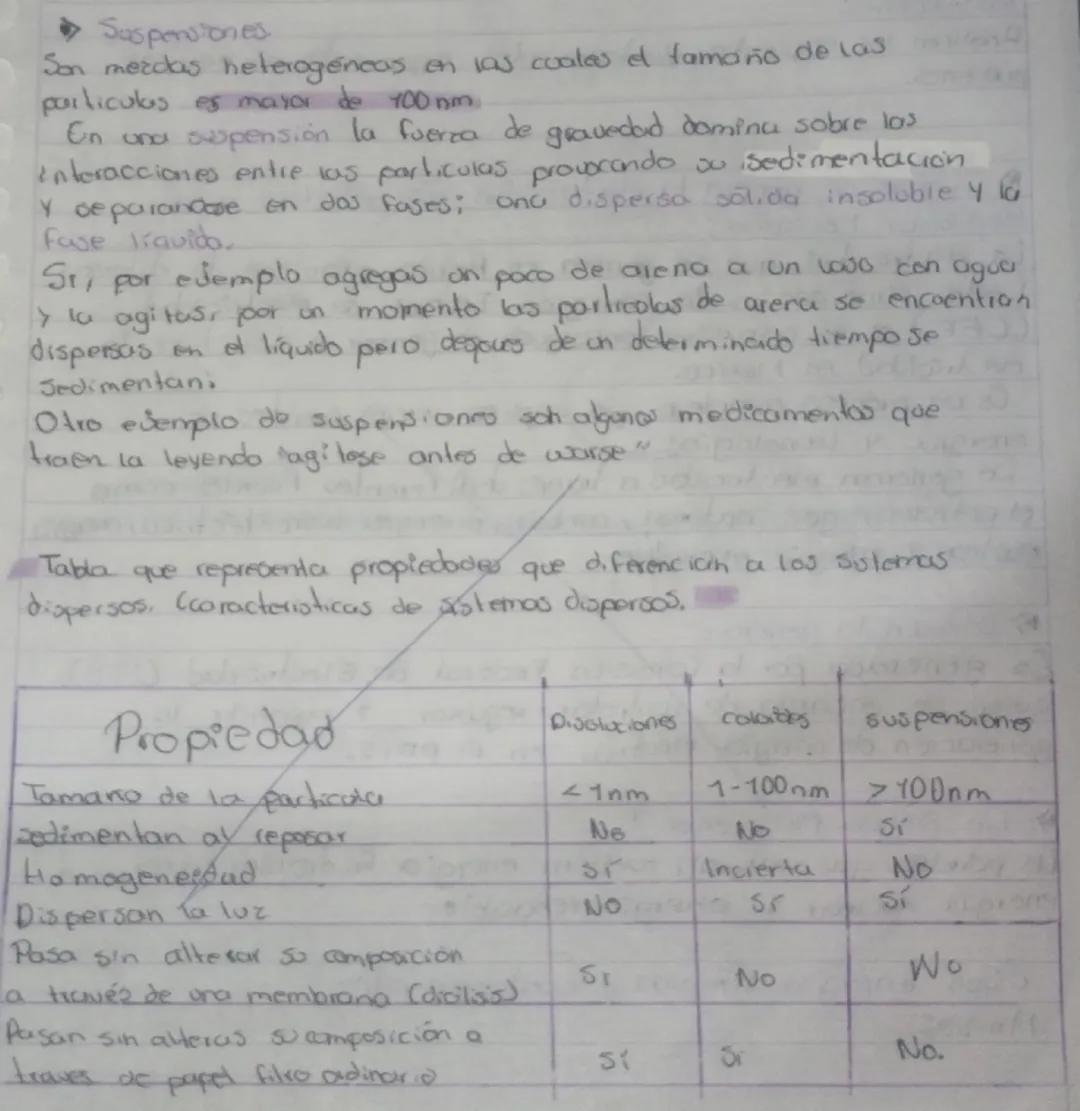 Suspensiones
Son mezclas heterogéneas en las cuales el tamaño de las
particulas es mayor de 100 nm
En una suspensión la fuerza de gravedad domina sobre las
interacciones entre las particulas provocando su sedimentación
Y separandose en dos fases; una dispersa sólida insoluble y la
fase líquida.
Si, por ejemplo agregas un poco de arena a un vaso con agua
y la agitas, por un momento las particulas de arena se encuentran
dispersas en el líquido pero despues de un determinado tiempo se
sedimentan.
Otro ejemplo de suspensiones son algunos medicamentos que
traen la leyenda "agitese antes de usarse"
Tabla que representa propiedades que diferencian a los sistemas
dispersos. (caracteristicas de sistemas dispersos.
Propiedad Disoluciones coloides suspensiones
Tamano de la particula <1nm 1-100nm >100nm
sedimentan al reposar No No Sí
Homogeneidad Sí Incierta No
Dispersan la luz No Sí Sí
Pasa sin alterar su composición
a travéz de una membrana (diálisis) Si No No
Pasan sin alteras su composición a
traves de papel filtro ordinario Sí Si No.